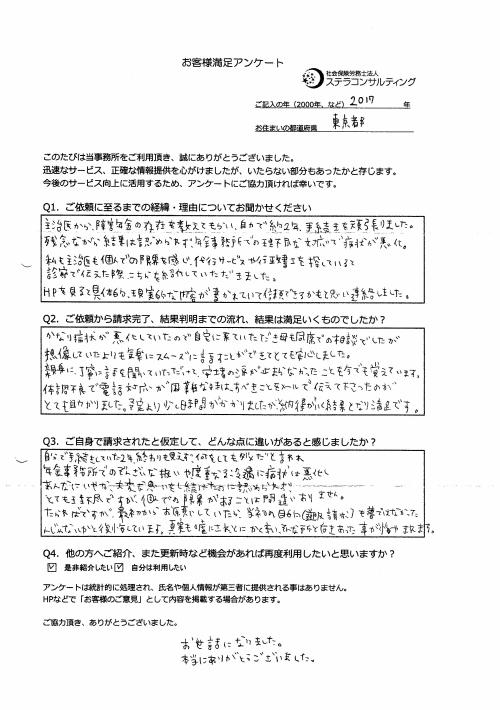 お客様満足アンケート
社会保険労務士法人
ステラコンサルティング
ご記入の年（2000年、など） 2017 年
お住まいの都道府県 東京都
このたびは当事務所をご利用頂き、誠にありがとうございました。
迅速なサービス、正確な情報提供を心がけましたが、いたらない部分もあったかと存じます。
今後のサービス向上に活用するため、アンケートにご協力頂ければ幸いです。
Q1. ご依頼に至るまでの経緯・理由についてお聞かせください
主治医から、障害年金の存在を教えてもらい、自力で約2年、手続きを頑張りました。
残念ながら結果は認められず、年金事務所での理不尽な対応で病状が悪化。
私も主治医も個人での限界を感じ、代行サービスや行政書士を探していると
診察で伝えた際、こちらを紹介していただきました。
HPを見ると具体的、現実的な内容が書かれていて信頼できるかもと思い連絡しました。
Q2. ご依頼から請求完了、結果判明までの流れ、結果は満足いくものでしたか？
かなり症状が悪化していたので自宅に来ていただき母も同席での相談でしたが
想像していたよりも気楽にスムーズに話すことができてとても安心しました。
親身に、丁寧に話を聞いていただけて、安堵の涙が止まらなかったことを今でも覚えています。
体調不良で電話対応が困難な時はすべきことをメールで伝えて下さったのが
とても助かりました。予定より少し時間がかかりましたが、納得がいく結果となり満足です。
Q3. ご自身で請求されたと仮定して、どんな点に違いがあると感じましたか？
自分で手続をしていた2年、終わりも見えず、何をしても
年金事務所でのぞんざいな扱いや度重なる
あんなにいやな、大変な思いをし続けたのに認められず
とても残念ですが、個人での限界があることは間違いありません。
たらればですが、最初からお願いしていたら、当初の目的
Q4. 他の方へご紹介、また更新時など機会があれば再度利用したいと思いますか？
☑ 是非紹介したい ☑ 自分は利用したい
アンケートは統計的に処理され、氏名や個人情報が第三者に提供される事はありません。
HPなどで「お客様のご意見」として内容を掲載する場合があります。
ご協力頂き、ありがとうございました。
お世話になりました。
本当にありがとうございました。